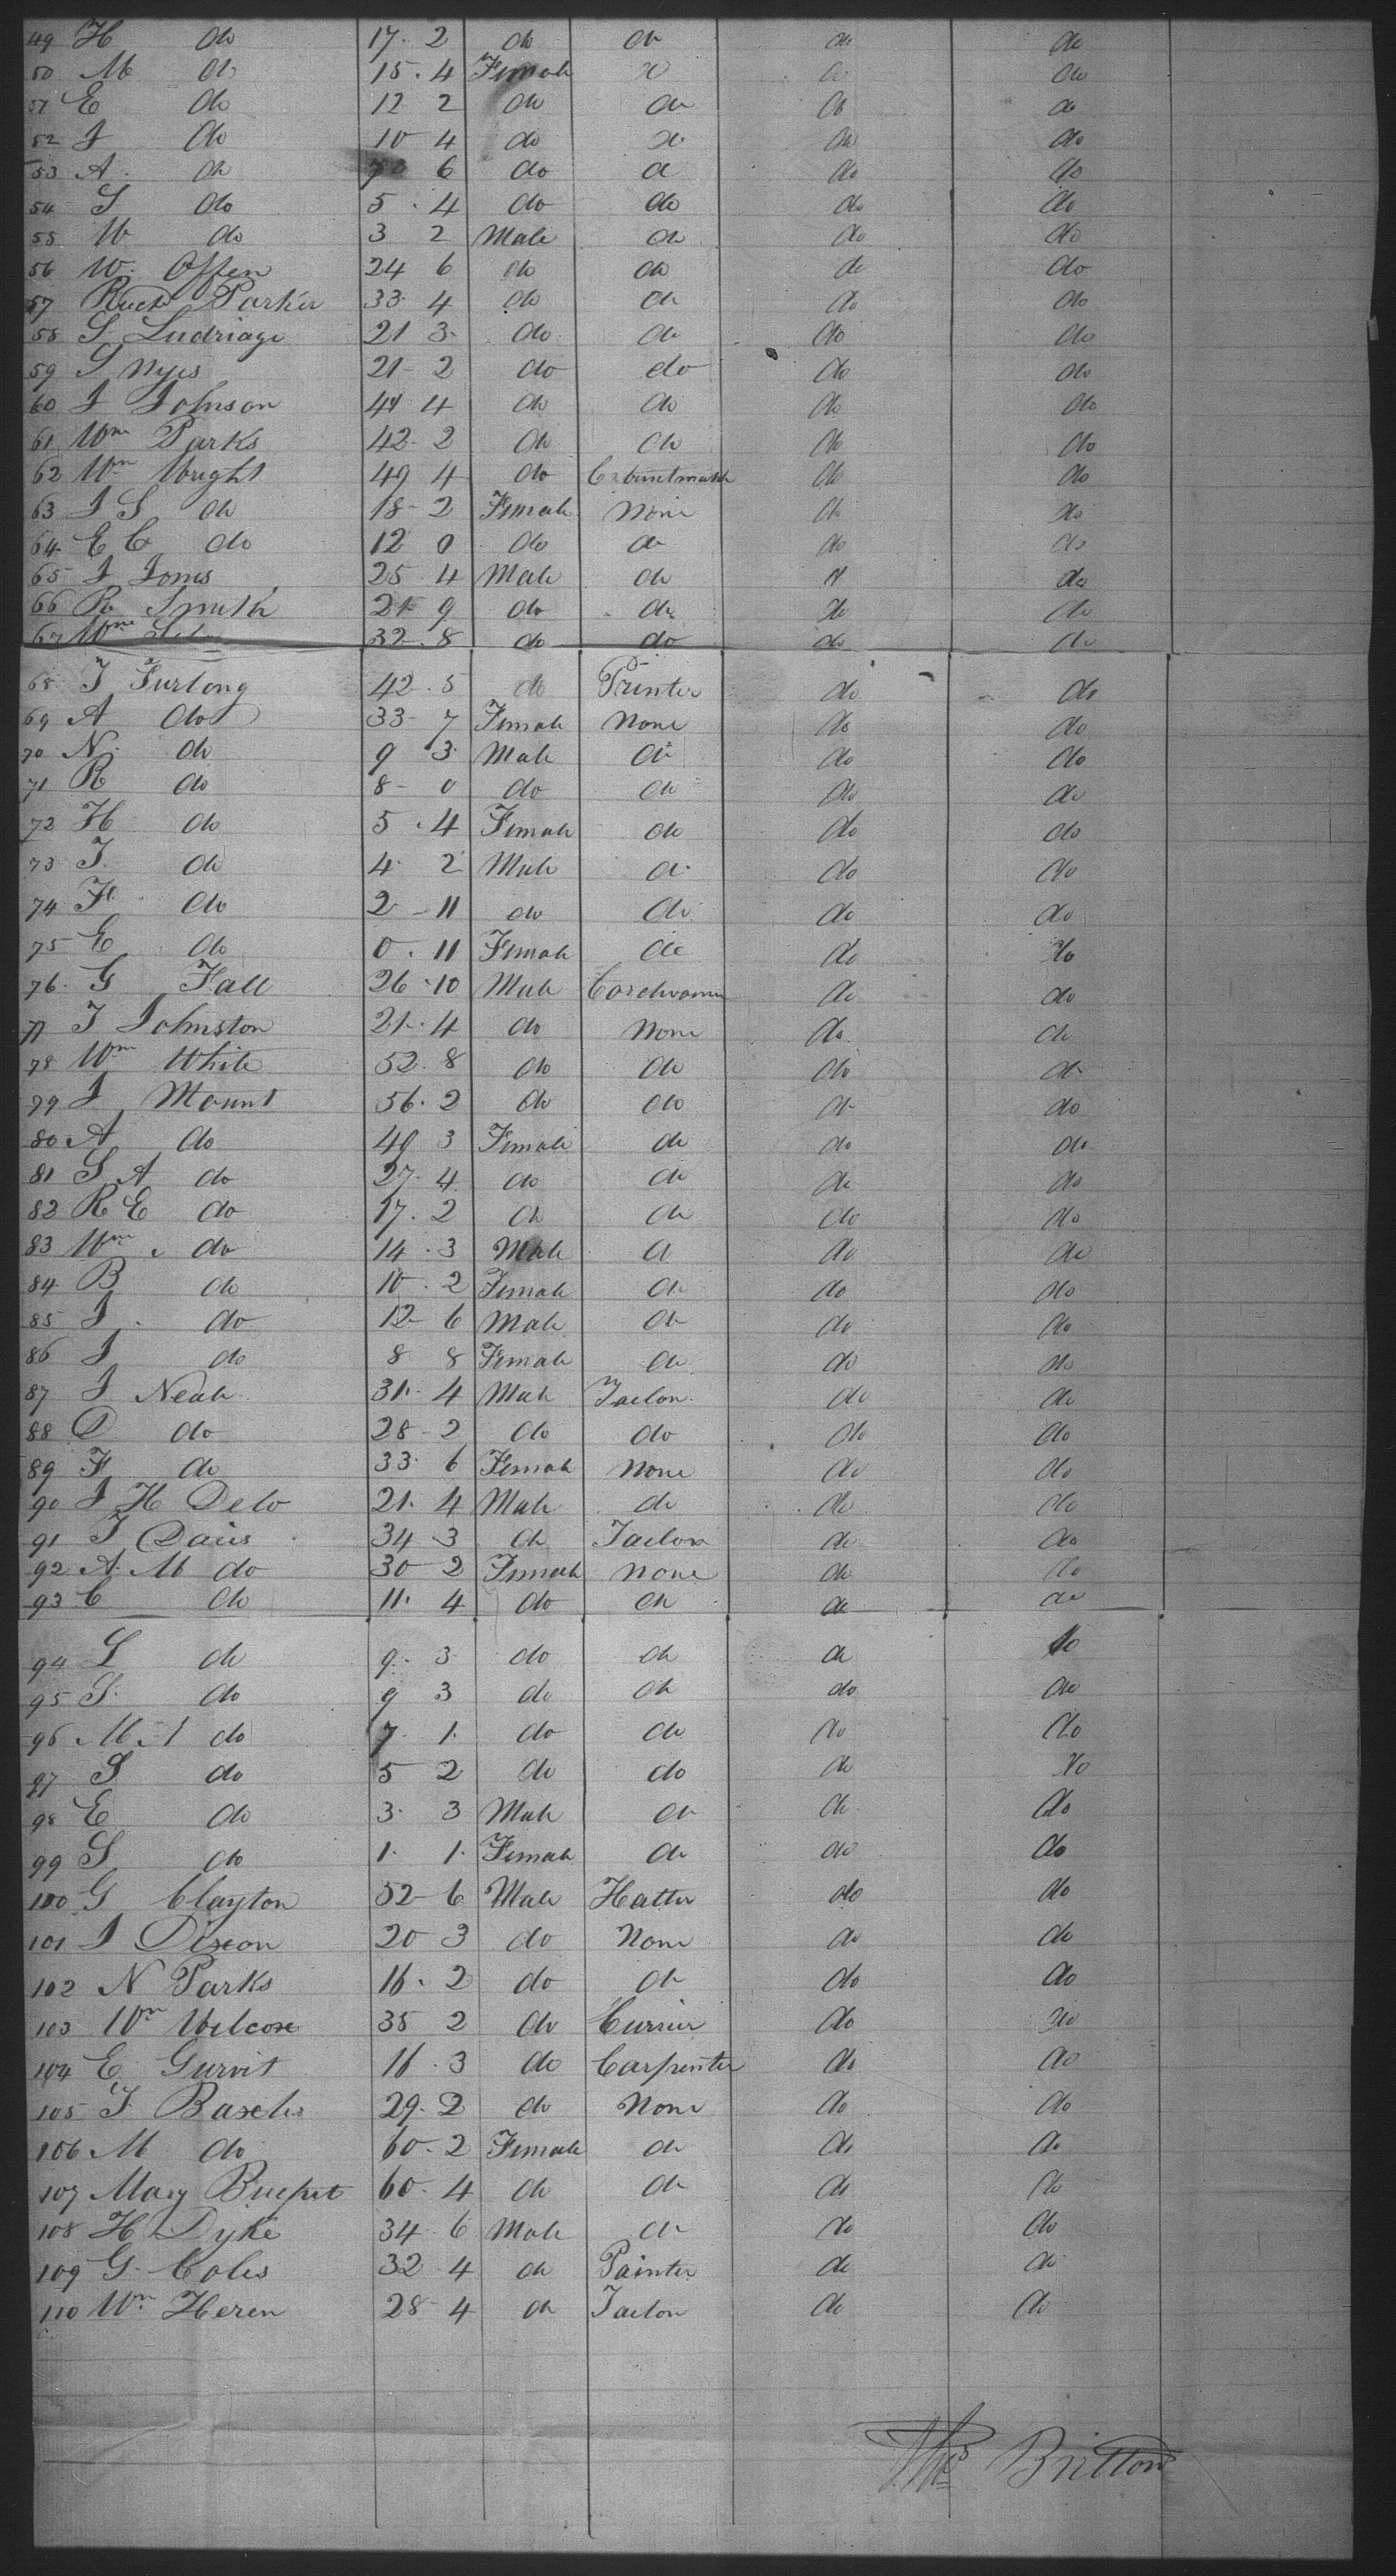 49 H do 17 - 2 do do do do
50 M do 15 . 4 Female do do do
51 E do 12 2 do do do do
52 J do 10 4 do do do do
53 A . do 7 6 do do do do
54 S do 5 . 4 do do do do
55 W do 3 2 Male do do do
56 W. Offen 24 6 do do do do
57 Richd Parker 33 . 4 do do do do
58 S Ludriage 21 3 . do do do do
59 S Nyes 21 - 2 do do do do
60 J Johnson 44 4 do do do do
61 Wm Parks 42 - 2 do do do do
62 Wm Wright 49 4 do Cabinetmaker do do
63 J S do 18 - 2 Female None do do
64 E C do 12 0 do do do do
65 J Jones 25 4 Male do do do
66 R Smith 21 9 do do do do
67 Wm 32 . 8 do do do do
68 J Furlong 42 . 5 do Printer do do
69 A do 33 - 7 Female None do do
70 N . do 9 3 . Male do do do
71 R do 8 - 0 do do do do
72 H do 5 . 4 Female do do do
73 J. do 4 - 2 Male do do do
74 F. do 2 - 11 do do do do
75 E do 0 . 11 Female do do do
76 . G Fall 26 . 10 Male Cordwainer do do
77 J Johnston 21 . 4 do None do do
78 Wm White 52 . 8 do do do do
79 J Mount 56 . 2 do do do do
80 A do 49 3 Female do do do
81 S A do 27 - 4 do do do do
82 R E do 17 . 2 do do do do
83 Wm do 14 . 3 Male do do do
84 B do 10 . 2 Female do do do
85 J . do 12 - 6 Male do do do
86 J do 8 8 Female do do do
87 J Neale 31 . 4 Male Taelor do do
88 D do 28 - 2 do do do do
89 F do 33 . 6 Female None do do
90 J H Delo 21 . 4 Male do do do
91 J Davis 34 - 3 do Taelor do do
92 A. M do 30 - 2 Female None do do
93 C do 11 . 4 do do do do
94 L do 9 . 3 do do do do
95 S . do 9 3 do do do do
96 M A do 7 - 1 . do do do do
97 S do 5 2 do do do do
98 E do 3 . 3 Male do do do
99 S do 1 . 1 . Female do do do
100 G Clayton 52 - 6 Male Hatter do do
101 J Dixon 20 3 do None do do
102 N Parks 16 . 2 do do do do
103 Wm Wilcox 35 2 do Currier do do
104 E Gurvit 16 . 3 do Carpenter do do
105 J Baxeles 29 . 2 do None do do
106 M do 60 . 2 Female do do do
107 Mary 60 . 4 do do do do
108 H Dyke 34 . 6 Male do do do
109 G. Coles 32 . 4 do Painter do do
110 Wm Heren 28 - 4 do Taelor do do
Thos Britton